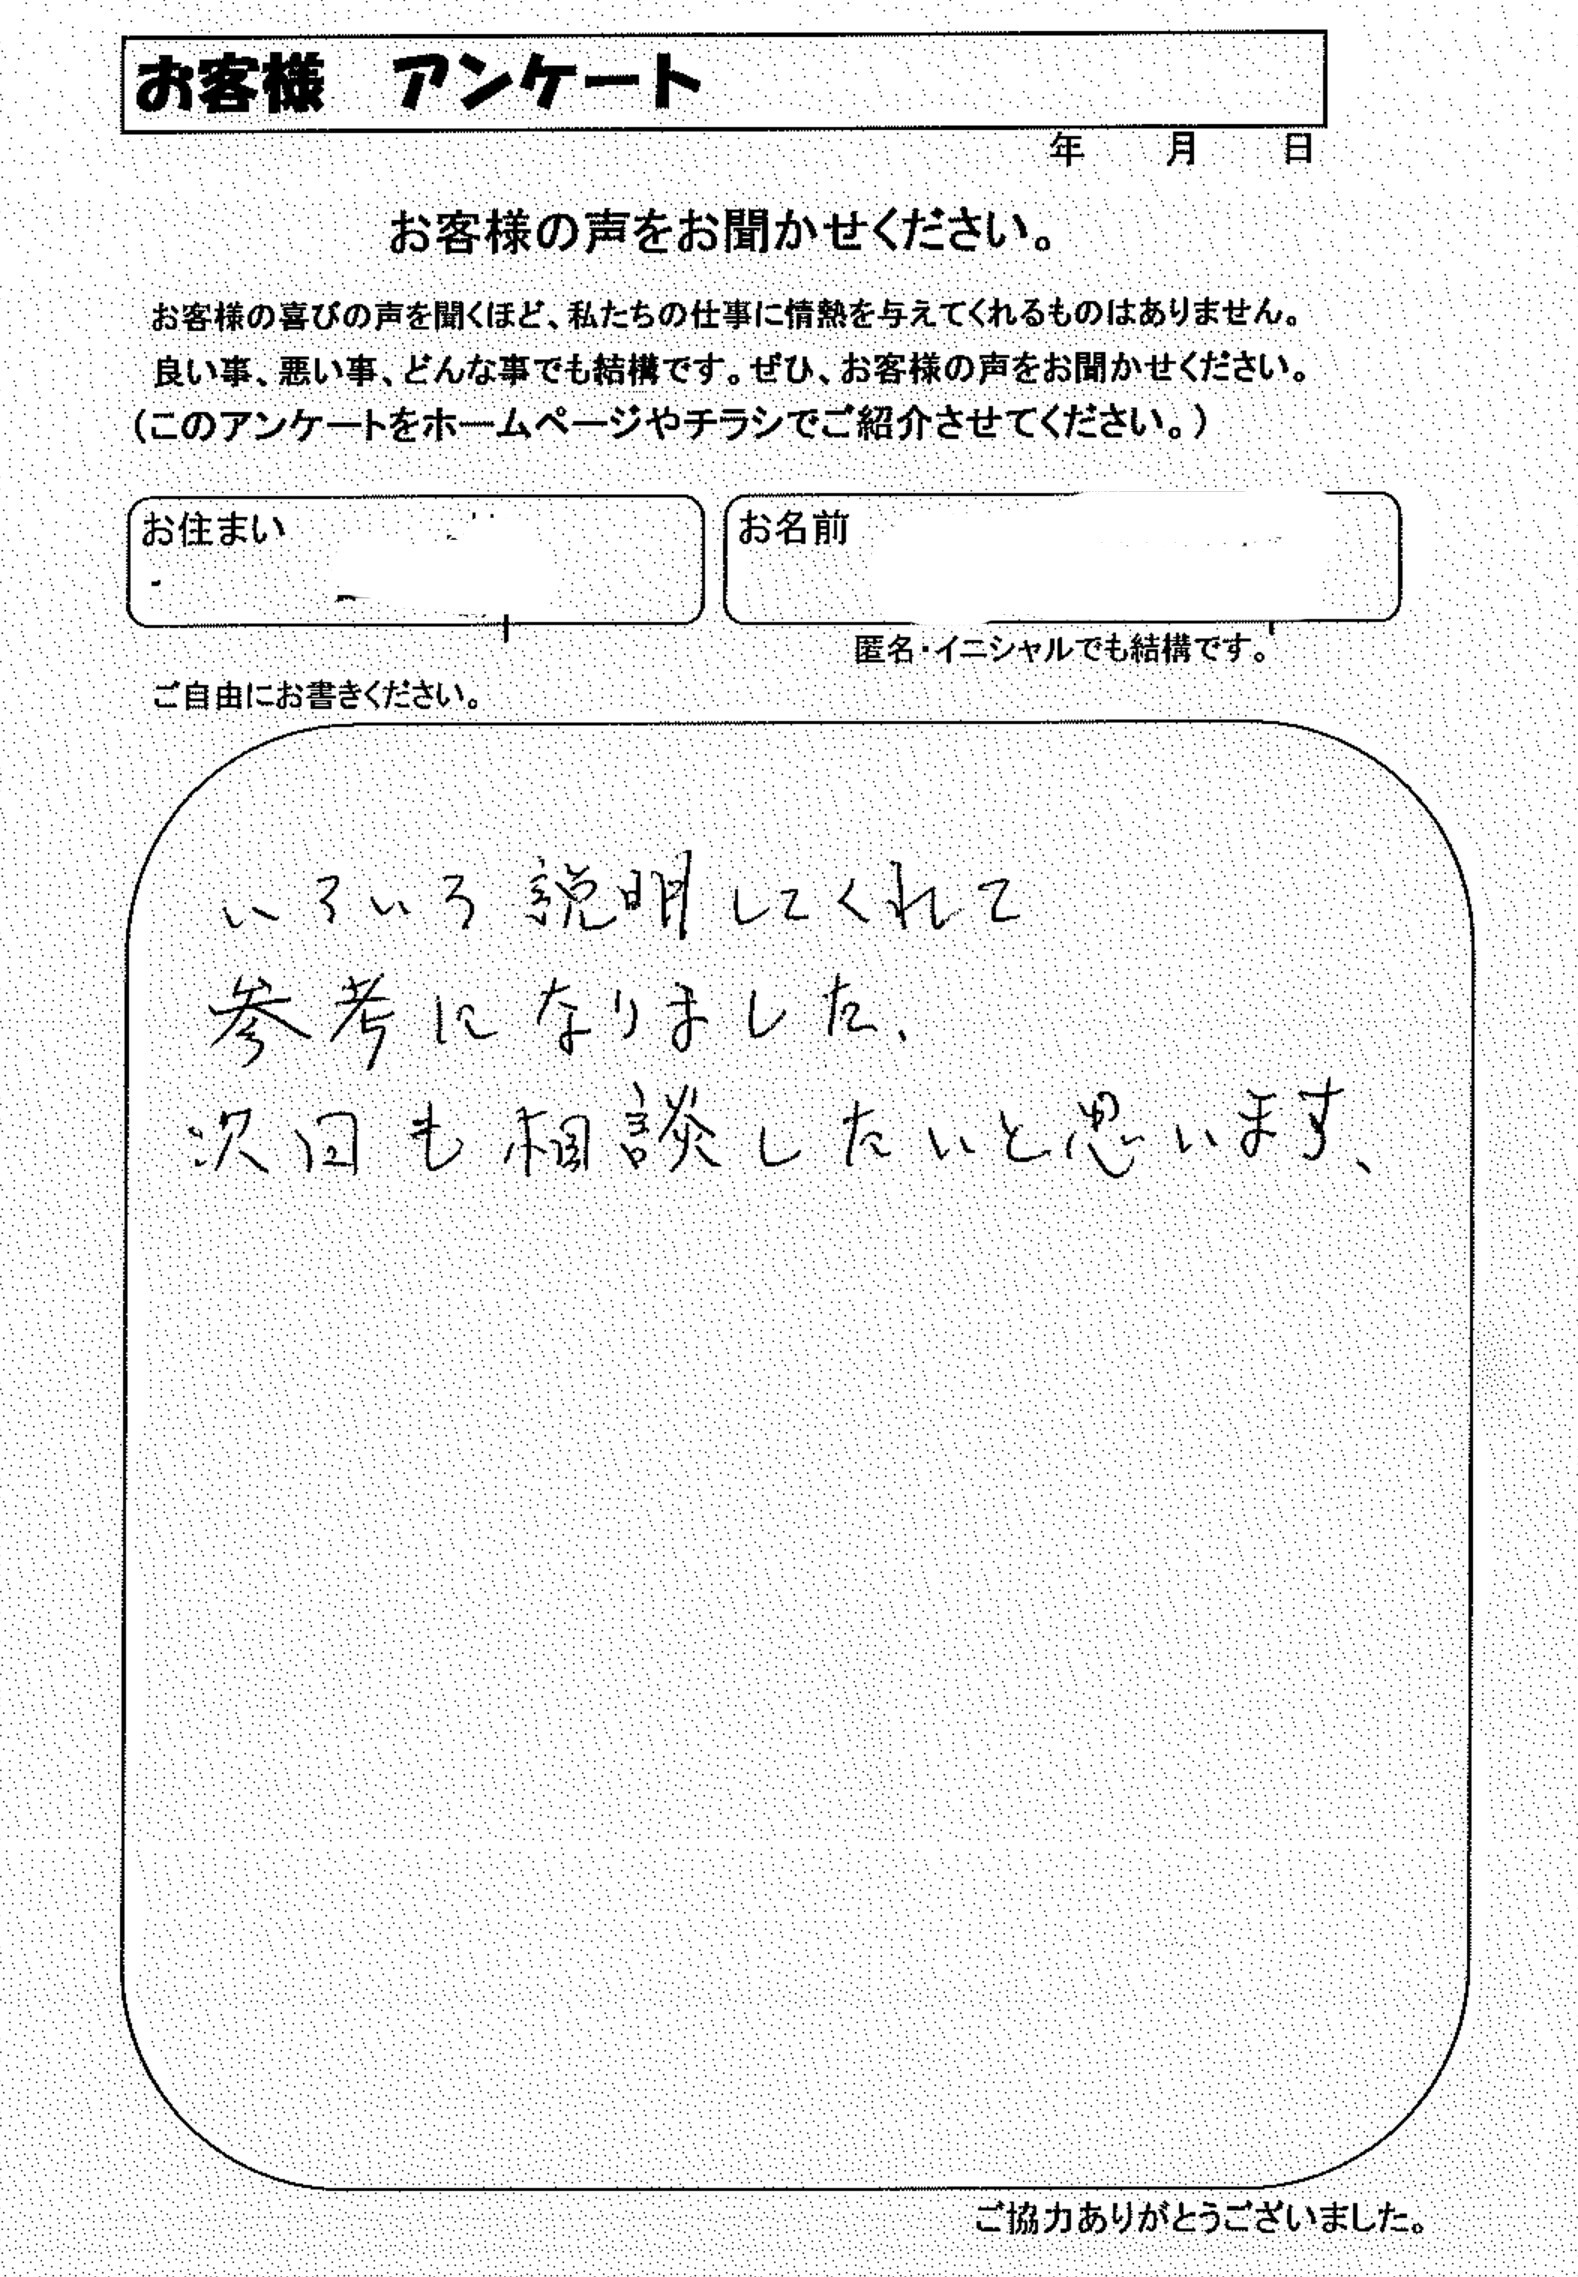 お客様　アンケート
年　月　日
お客様の声をお聞かせください。
お客様の喜びの声を聞くほど、私たちの仕事に情熱を与えてくれるものはありません。
良い事、悪い事、どんな事でも結構です。ぜひ、お客様の声をお聞かせください。
（このアンケートをホームページやチラシでご紹介させてください。）
お住まい
お名前
匿名・イニシャルでも結構です。
ご自由にお書きください。
いろいろ説明してくれて
参考になりました、
次回も相談したいと思います、
ご協力ありがとうございました。